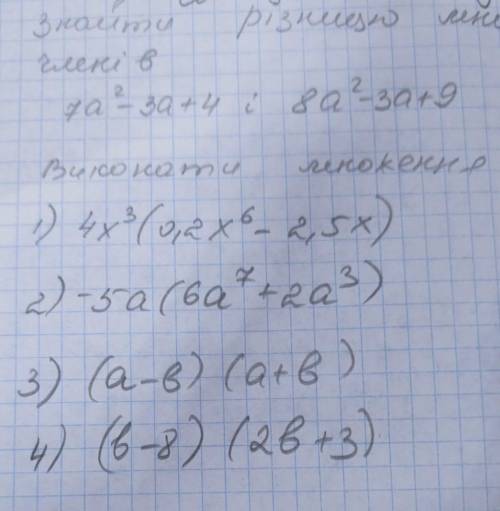 Знайти різницю мно
членів
7a² - 3a + 4 і 8a² - 3a + 9
Виконати множення
1) 4x³(0,2x⁶ - 2,5x)
2) -5a(6a⁷ + 2a³)
3) (a - b) (a + b)
4) (b - 8) (2b + 3)